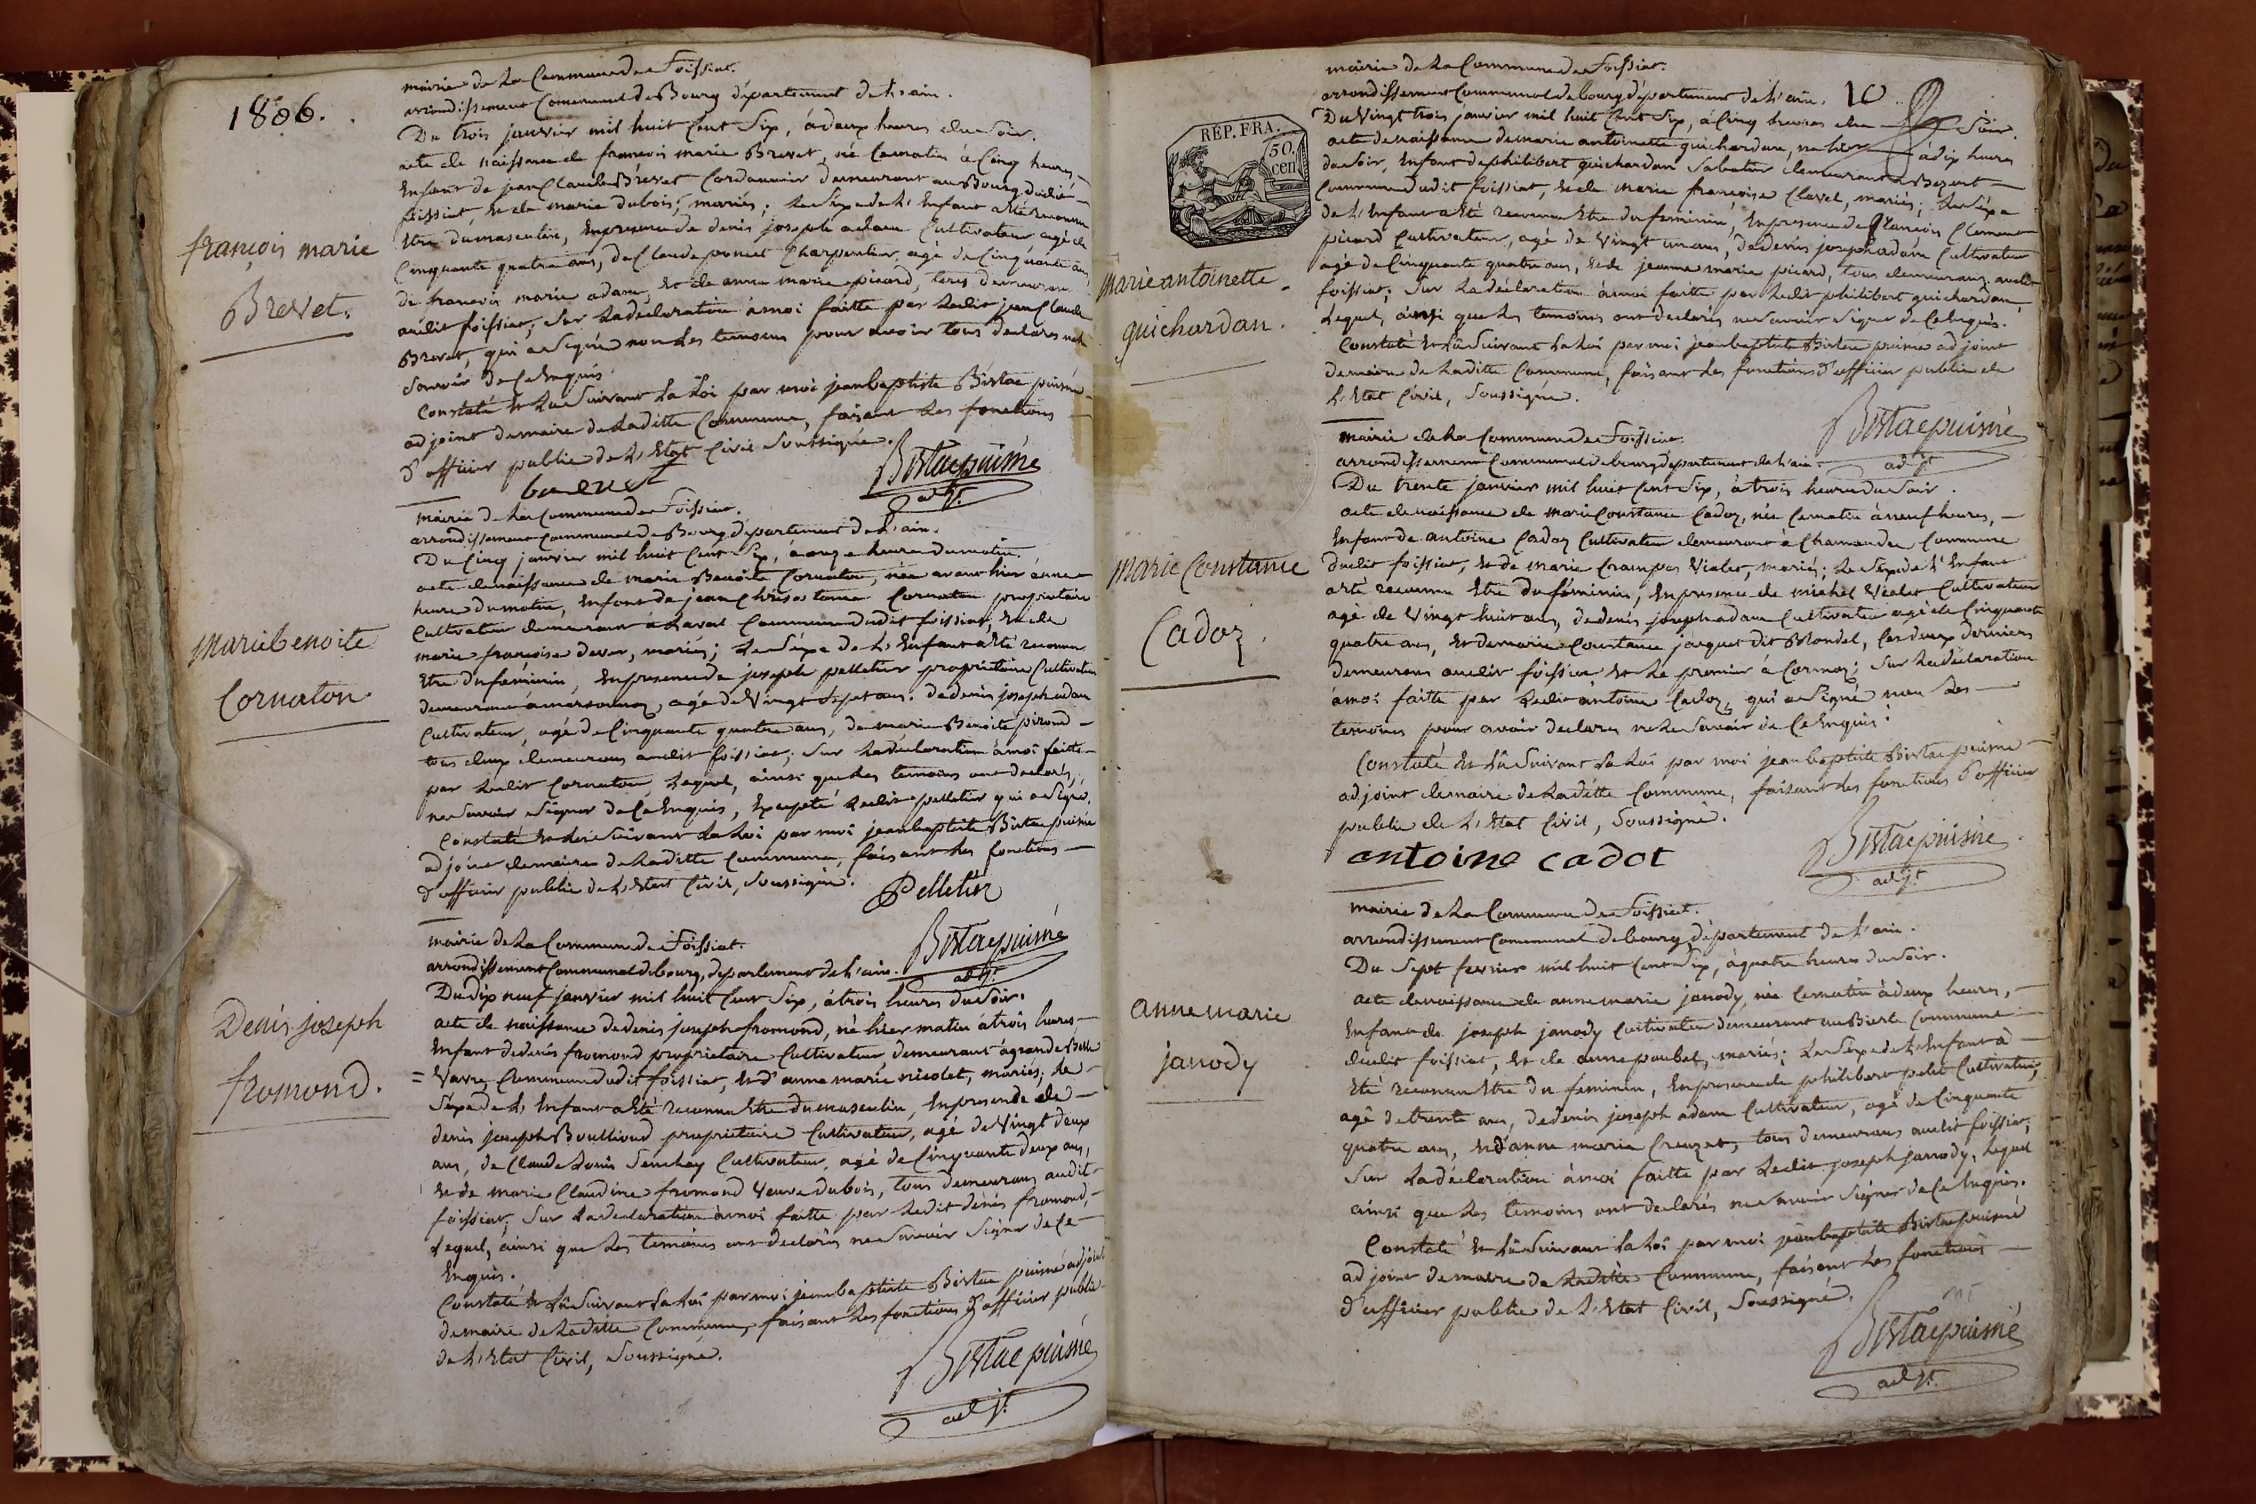 1806.
mairie de la Commune de Foissiat.
arrondissement Communal de Bourg département de l'ain.
Du trois janvier mil huit Cent Six, à deux heures du Soir.
acte de naissance de françois marie Brevet, né Cematin à Cinq heures,
Enfant de jean Claude Brevet Cordonnier demeurant au Bourg dudit
foissiat, et de marie dubois, mariés; Le Sexe de L'Enfant a été reconnu
Etre du masculin, En presence de denis joseph adam Cultivateur agé de
Cinquante quatre ans, de Claude poncet Charpentier, agé de Cinquante ans
de francois marie adam, et de anne marie picard, tous demeurans
audit foissiat, Sur La declaration à moi faitte par Ledit jean Claude
Brevet, qui a Signé non Les temoins pour avoir tous declarés ne le
Savoir de Ce Enquis.
Constaté et Lû Suivant La Loi par moi jean baptiste Bistac puisné
adjoint demaire de Laditte Commune, faisant Les fonctions
d'officier public de L'Etat Civil Soussigné.
Bistac puisné
adjt.
françois marie
Brevet.
mairie de La Commune de Foissiat.
arrondissement Communal de Bourg département de L'ain.
Du Cinq janvier mil huit Cent Six, à onze heures du matin.
acte de naissance de marie Benoite Cornaton, née avant hier à une
heure du matin, Enfant de jean Chrisostome Cornaton proprietaire
Cultivateur demeurant à Lavat Commune dudit foissiat, et de
marie françoise devar, mariés; Le Sexe de L'Enfant a été reconnu
Etre du féminin, En presence de joseph pelletier proprietaire Cultivateur
demeurant à marsonnaz, agé de Vingt Sept ans; de denis joseph adam
Cultivateur, agé de Cinquante quatre ans, de marie Benoite pirond
tous deux demeurans audit foissiat; Sur La déclaration à moi faitte
par Ledit Cornaton, Lequel, ainsi que Les temoins ont declarés,
ne Savoir Signer de Ce Enquis, Excepté Ledit pelletier qui a Signé.
Constaté et Lû Suivant La Loi par moi jean baptiste Bistac puisné
adjoint de maire de Laditte Commune, faisant Les fonctions
d'officier public de L'Etat Civil, Soussigné.
Pelletier
Bistac puisné
adjt.
marie benoite
Cornaton
mairie de La Commune de Foissiat.
arrondissement Communal de bourg, departement de L'ain.
Du dix neuf janvier mil huit Cent Six, à trois heures du Soir.
acte de naissance de denis joseph fromond, né hier matin à trois heures
Enfant de denis fromond proprietaire Cultivateur demeurant à grande Belle
= Vavre Commune dudit foissiat, et d'anne marie nicolet, mariés; Le
Sexe de L'Enfant a été reconnu Etre du masculin, En presence de
denis joseph Boulliond proprietaire Cultivateur, agé de Vingt deux
ans, de Claude Louis Cultivateur, agé de Cinquante deux ans,
et de marie Claudine fromond Veuve dubois, tous demeurans audit
foissiat; Sur La declaration à moi faitte par Ledit denis fromond,
Lequel, ainsi que Les temoins ont declarés ne Savoir Signer de Ce
Enquis.
Constaté et Lû Suivant La Loi par moi jean baptiste Bistac puisné adjoint
demaire de Laditte Commune, faisant Les fonctions d'officier public
de L'Etat Civil, Soussigné.
Bistac puisné
adjt.
Denis joseph
fromond.
RÉP. FRA.
50.
cen
mairie de La Commune de Foissiat.
arrondissement Communal de bourg département de L'ain. 10
Du Vingt trois janvier mil huit Cent Six, à Cinq heures du Soir.
acte de naissance de marie antoinette guichardan, née hier à dix heures
du Soir, Enfant de philibert guichardan Sabotier demeurant à
Commune dudit foissiat, et de marie françoise Clavel, mariés; Le Sexe
de L'Enfant a été reconnu Etre du feminin, En presence de francois Clement
picard Cultivateur, agé de Vingt un ans, de denis joseph adam Cultivateur
agé de Cinquante quatre ans, et de jeanne marie picard, tous demeurans audit
foissiat; Sur La declaration à moi faitte par Ledit philibert guichardan
Lequel, ainsi que Les temoins ont declarés ne Savoir Signer de Ce Enquis.
Constaté et Lû Suivant La Loi par moi jean baptiste Bistac puisné adjoint
de maire de Laditte Commune, faisant Les fonctions d'officier public de
L'Etat Civil, Soussigné.
Bistac puisné
adjt.
marie antoinette
guichardan.
mairie de La Commune de Foissiat.
arrondissement Communal de bourg département de L'ain.
Du trente janvier mil huit Cent Six, à trois heures du Soir.
acte de naissance de marie Constance Cadoz, née Cematin à neuf heures,
Enfant de antoine Cadoz Cultivateur demeurant à Chamandre Commune
dudit foissiat, et de marie Vialet, mariés; Le Sexe de L'Enfant
a été reconnu Etre du féminin, En presence de michel Vialet Cultivateur
agé de Vingt huit ans, de denis joseph adam Cultivateur agé de Cinquante
quatre ans, et de marie Constance jacquet dit Blondel, Les deux derniers
demeurans audit foissiat et Le premier à Cormoz; Sur La declaration
à moi faitte par Ledit antoine Cadoz, qui a Signé non Les
temoins pour avoir declarés ne Le Savoir de Ce Enquis.
Constaté et Lû Suivant La Loi par moi jean baptiste Bistac puisné
adjoint de maire de Laditte Commune, faisant Les fonctions d'officier
public de L'Etat Civil, Soussigné.
antoine cadot
Bistac puisné
adjt.
marie Constance
Cadoz.
mairie de La Commune de Foissiat.
arrondissement Communal de bourg département de L'ain.
Du Sept fevrier mil huit Cent Six, à quatre heures du Soir.
acte de naissance de anne marie janody, née Cematin à deux heures,
Enfant de joseph janody Cultivateur demeurant au Biole Commune
dudit foissiat, et de anne poubel, mariés; Le Sexe de L'Enfant à
été reconnu Etre du feminin, En presence de philibert petit Cultivateur,
agé de trente ans, de denis joseph adam Cultivateur, agé de Cinquante
quatre ans, et d'anne marie Creuzet, tous demeurans audit foissiat;
Sur La déclaration à moi faitte par Ledit joseph janody, Lequel
ainsi que Les temoins ont declarés ne Savoir Signer de Ce Enquis.
Constaté et Lû Suivant La Loi par moi jean baptiste Bistac puisné
adjoint de maire de Laditte Commune, faisant Les fonctions
d'officier public de L'Etat Civil, Soussigné.
Bistac puisné
adjt.
anne marie
janody